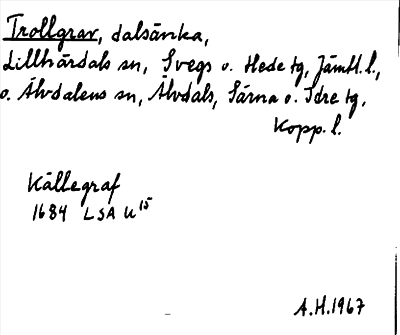 Trollgrav, dalsänka,
Lillhärdals sn, Svegs o. Hede tg, Jämtl. l.,
o. Älvdalens sn, Älvdals, Särna o. Idre tg,
Kopp. l.
Källegraf
1684 LSA U 15
A.H. 1967